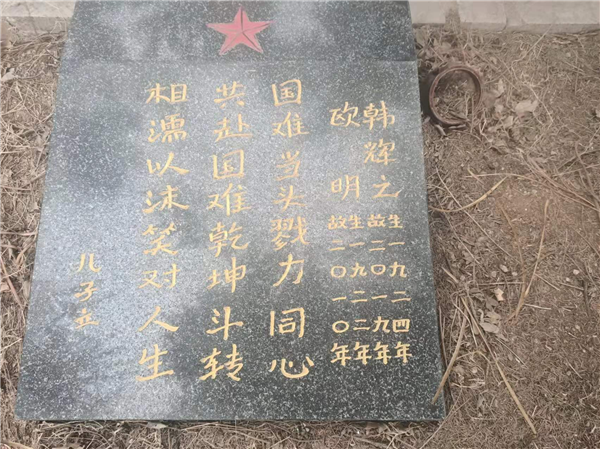 韩辉之 生一九二四年
故二〇一九年
欧明 生一九二二年
故二〇一〇年
国难当头戮力同心
共赴国难乾坤斗转
相濡以沫笑对人生
儿子立